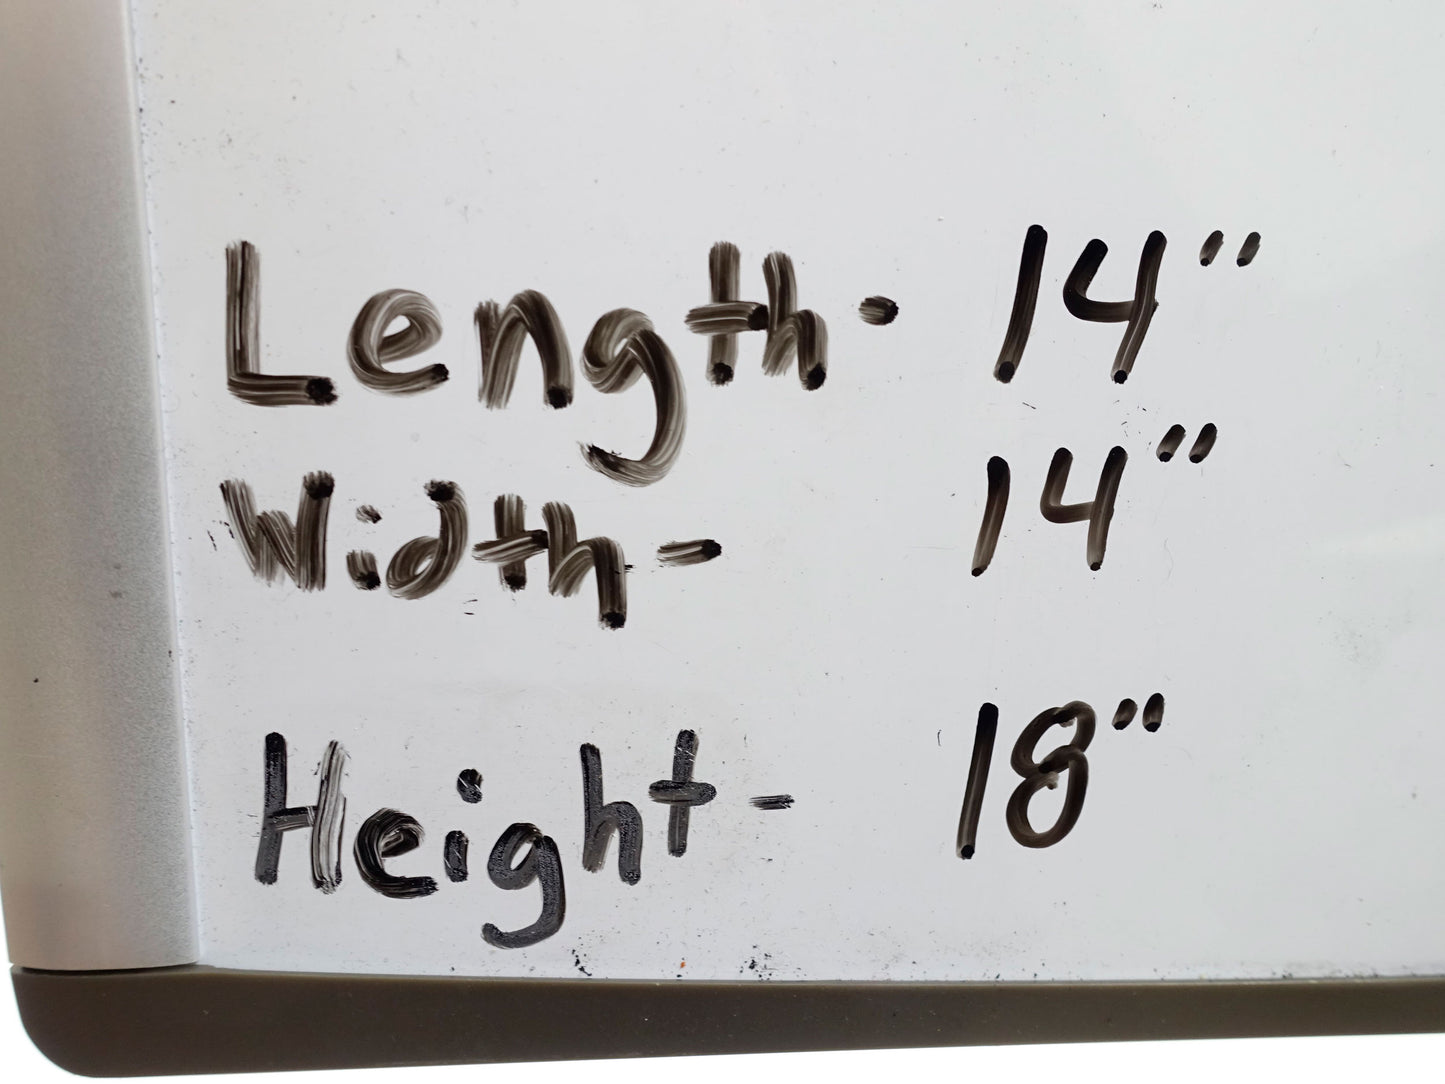 Length- 14"
Width- 14"
Height- 18"